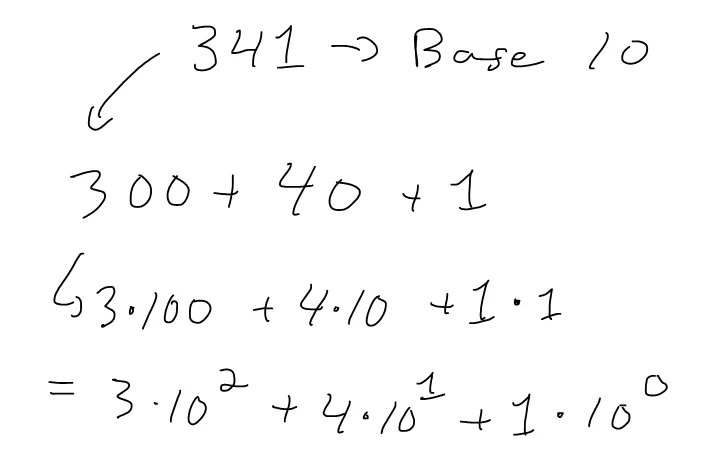 341 → Base 10
300 + 40 + 1
↳ 3·100 + 4·10 + 1·1
= 3·10² + 4·10¹ + 1·10⁰